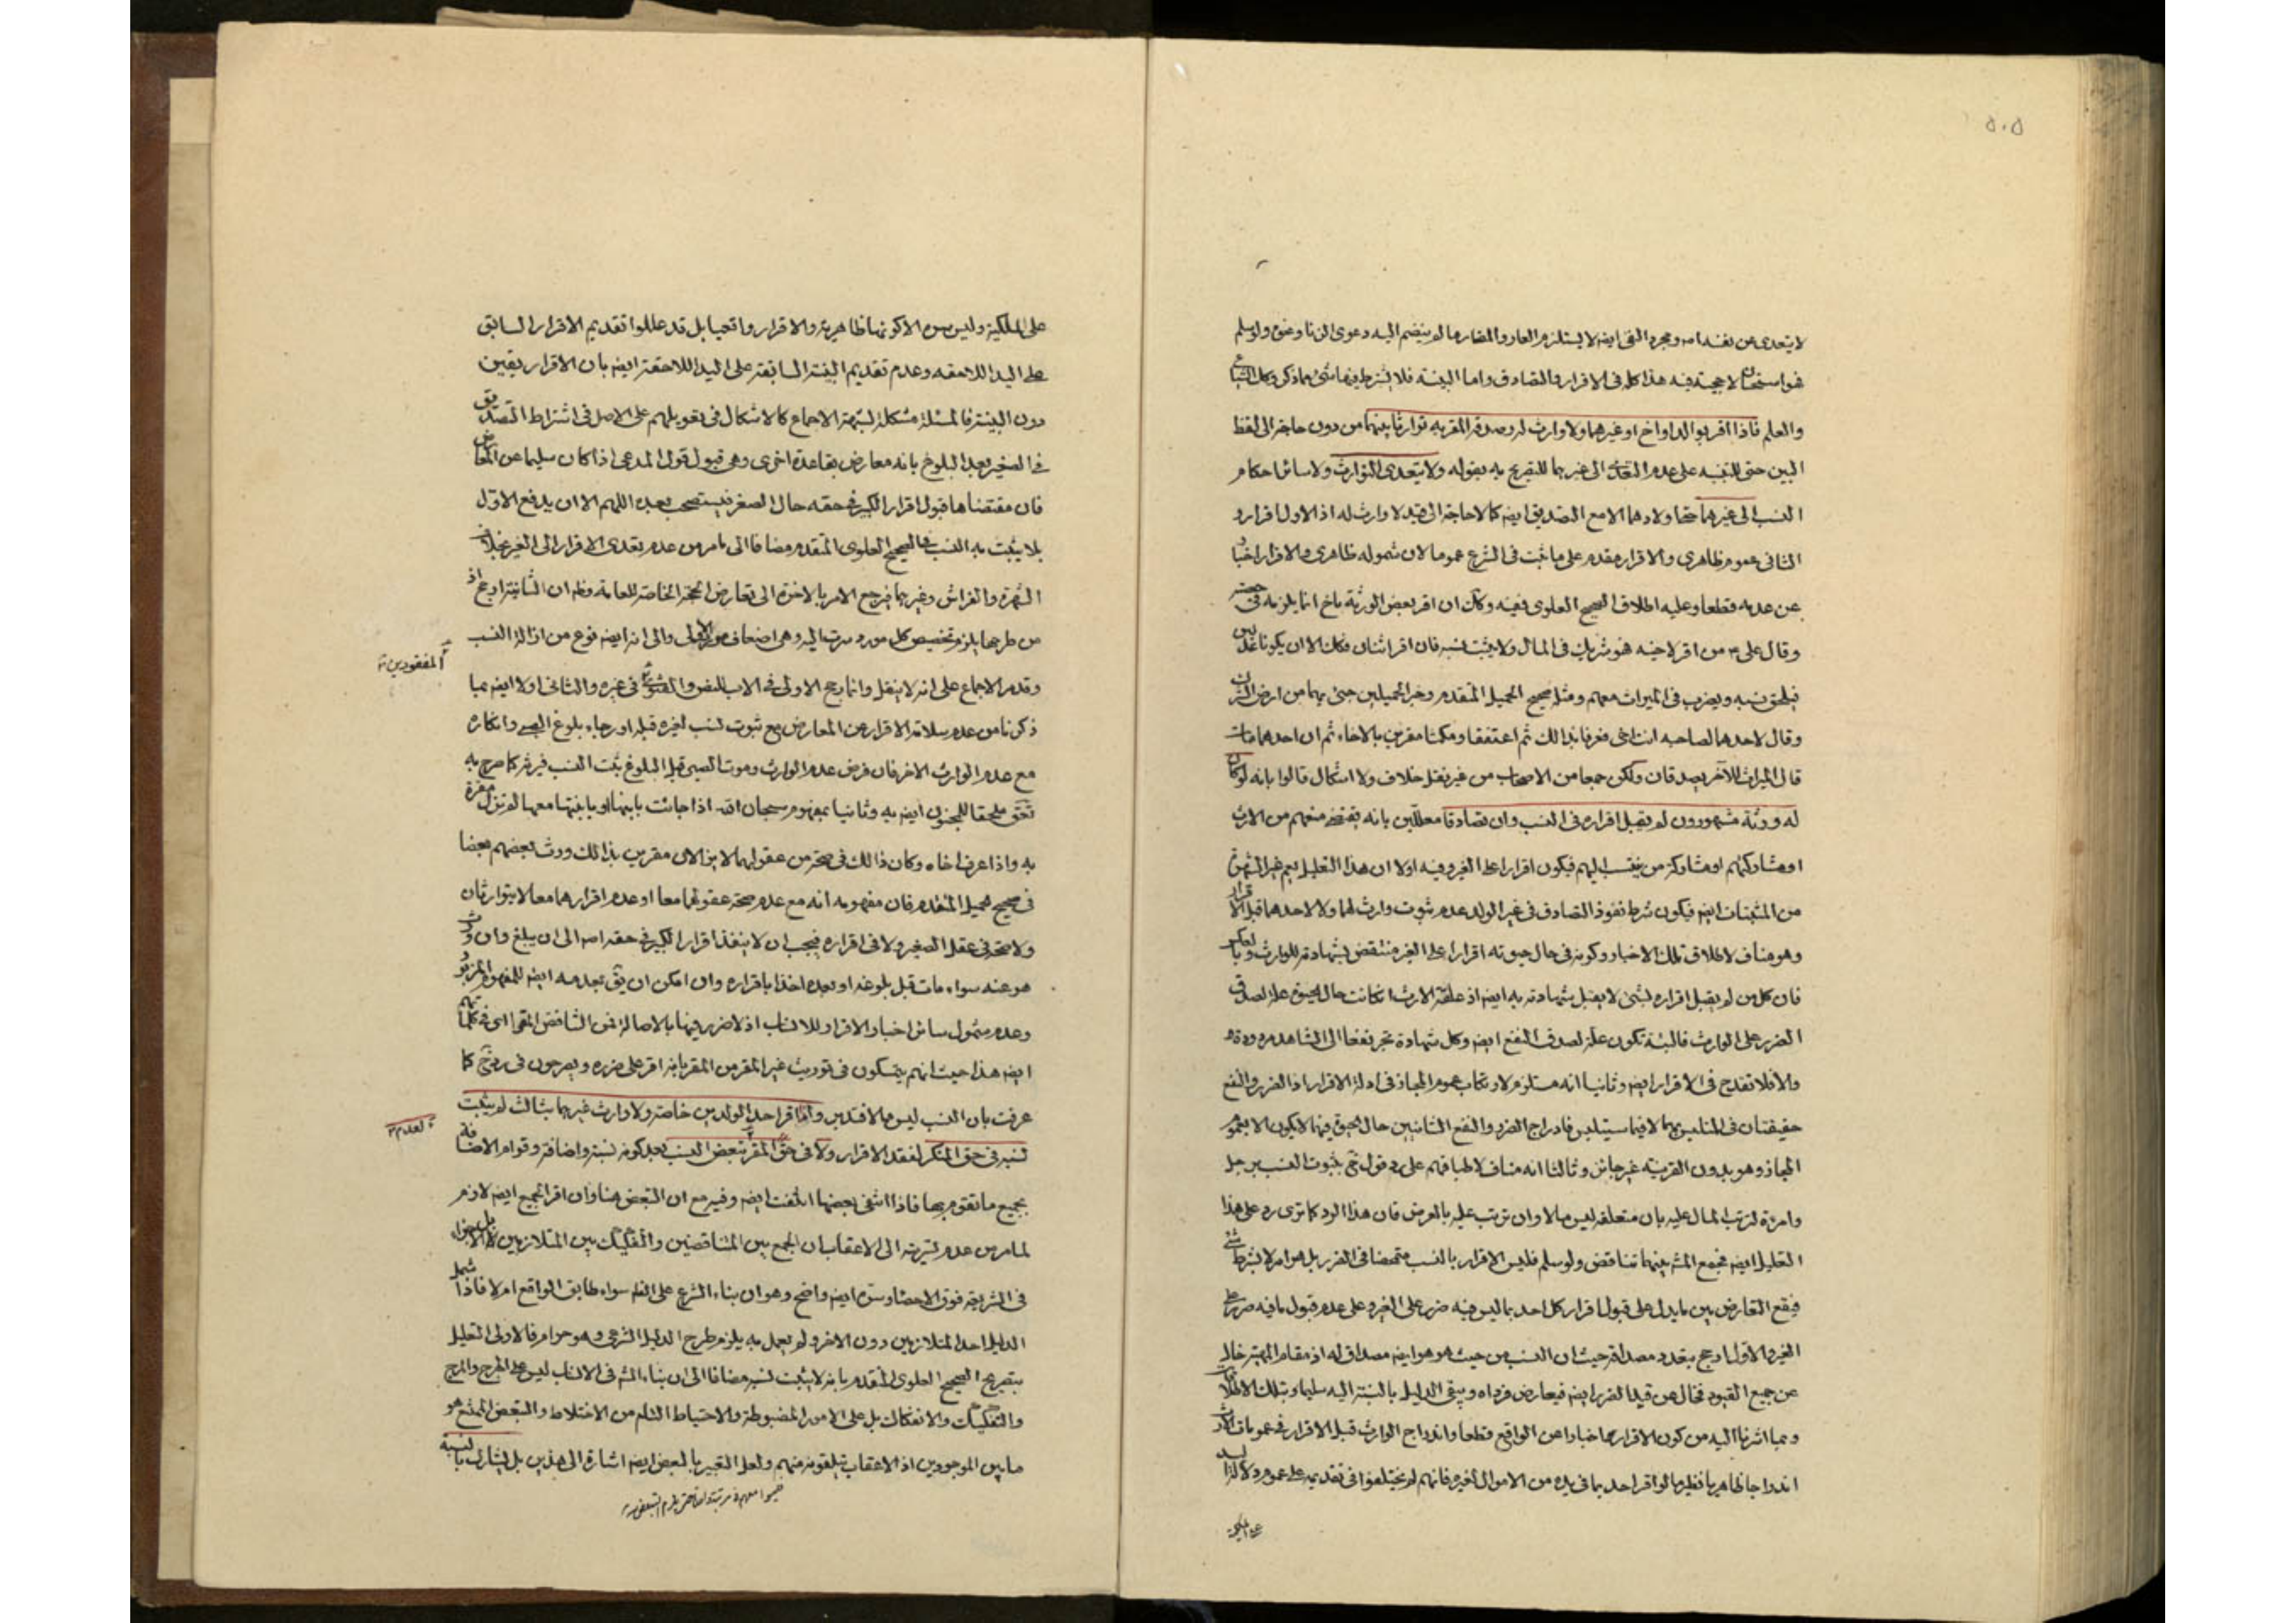 ٥٠٥
لا يتعدى عن نفسه اه ومجرد النفى ايضا لا يستلزم العار والمضار ما لم ينضم اليه دعوى الزنا ونحوه ولو سلم
فهو استحقاق لا حجية فيه هذا كله فى الاقرار والتصادق واما البينة فلا يشترط فيها شئ مما ذكر وكك الشياع
والعلم فاذا اقر بوالد او اخ او غيرهما ولا وارث له وصدقه المقر به توارثا بينهما من دون حاجة الى لفظ
البين حتى للتنبيه على عدم التعدى الى غيرهما للتصريح به بقوله ولا يتعدى التوارث ولا سائر احكام
النسب الى غيرهما حتى اولادهما الا مع التصديق ايضا كما لا حاجة الى قيد لا وارث له اذ الاول اقرار و
الثانى عموم ظاهرى والاقرار مقدم على ما ثبت فى الشرع عموما لان شموله ظاهرى والاقرار اخبار
عن عدمه قطعا وعليه اطلاق الصحيح العلوى فيه وكك ان اقر بعض الورثة باخ انما يلزمه فى حصته
وقال على ع من اقر لاخيه فهو شريك فى المال ولا يثبت نسبه فان اقر اثنان فكك الا ان يكونا عدلين
فيلحق نسبه ويضرب فى الميراث معهم ومثله صحيح الحميل المتقدم وخبر الحميلين جئ بهما من ارض الشرك
وقال احدهما لصاحبه انت اخى فعرفا بذالك ثم اعتقا ومكثا مقرين بالاخاء ثم ان احدهما مات
قال الميراث للآخر يصدقان ولكن جمعا من الاصحاب من غير نقل خلاف ولا اشكال قالوا بانه لو كان
له ورثة مشهورون لم يقبل اقراره فى النسب وان تصادقا معللين بانه يقتضى منعهم من الارث
او مشاركتهم او مشاركة من ينتسب اليهم فيكون اقرارا على الغير وفيه اولا ان هذا التعليل يعم غير الشهرة
من المثبتات ايضا فيكون شرط نفوذ التصادق فى غير الولد عدم ثبوت وارث لهما ولا لاحدهما قبل الاقرار
وهو مناف لاطلاق تلك الاخبار وكونه فى حال حيوته اقرارا على الغير منتقض بشهادته للوارث وبالعكس
فان كل من لم يقبل اقراره بشئ لا يقبل شهادته به ايضا اذ علقة الارث ان كانت حال الحيوة علة لصدق
الضرر على الوارث فالبتة تكون علة لصدق النفع ايضا وكل شهادة تجر نفعا الى الشاهد مردودة
والا فلا تقدح فى الاقرار ايضا وثانيا انه مستلزم لارتكاب عموم المجاز فى ادلة الاقرار اذ الضرر والنفع
حقيقتان فى المتلبس بهما لا فيما سيتلبس فادراج الضرر والنفع الشانيين حال الحيوة فيها لا يكون الا بعموم
المجاز وهو بدون القرينة غير جائز وثالثا انه مناف لاطباقهم على رد قول الشيخ بثبوت النسب برجل
وامرئة لترتب المال عليه بان متعلقه ليس مالا وان ترتب عليه بالعرض فان هذا الرد كما ترى رد على هذا
التعليل ايضا فجمع بينهما تناقض ولو سلم فليس الاقرار بالنسب متمحضا فى الضرر بل هو امر لا بشرط شئ
فيقع التعارض بين ما يدل على قبول اقرار كل احد بما ليس فيه ضرر على الغير وعلى عدم قبول ما فيه ضرر على
الغير والاول ارجح بتعدد مصداقه حيث ان النسب من حيث هو هو ايضا مصداق له اذ مقام المهية خال
عن جميع القيود فخال عن قيد الضرر ايضا فيعارض فرداه ويبقى الدليل بالنسبة اليه سليما وبتلك الاطلاقات
وبما اشرنا اليه من كون الاقرار اخبارا عن الواقع قطعا واندراج الوارث قبل الاقرار فى عمومات الارث
اندراجا ظاهريا نظير ما لو اقر احد بما فى يده من الاموال لغيره فانهم لم يختلفوا فى تقديمه على عموم دلالة اليد
على الملكية
على الملكية وليس سره الا كونها ظاهرية والاقرار واقعيا بل قد عللوا تقديم الاقرار السابق
على اليد اللاحقه وعدم تقديم البينة السابقة على اليد اللاحقة ايضا بان الاقرار يقين
دون البينة فالمسئلة مشكلة لشبهة الاجماع كالاشكال فى تعويلهم على الاصل فى اشتراط التصديق
فى الصغير بعد البلوغ بانه معارض بقاعدة اخرى وهى قبول قول المدعى اذا كان سليما عن المعارض
فان مقتضاها قبول اقرار الكبير فى حقه حال الصغر فيستصحب بعده اللهم الا ان يدفع الاول
بلا يثبت به النسب فى الصحيح العلوى المتقدم مضافا الى ما مر من عدم تعدى الاقرار الى الغير بخلاف
الشهرة والفراش وغيرهما فيرجع الامر بالاخرة الى تعارض الحجة الخاصة للعامة وظ ان الثانية ارجح اذ
من طرحها يلزم تخصيص كل مورد سرت اليه وهى اضعاف موارد الاولى والى انه ايضا نوع من ازالة النسب
المفقودين
وقدم الاجماع على انه لا ينتقل وانما رجح الاولى فى الاب للنص والفتوى فى غيره والثانى اولا ايضا بما
ذكرنا من عدم سلامة الاقرار عن المعارض مع ثبوت نسب لغيره قبله او رجاء بلوغ الصبى وانكاره
مع عدم الوارث الاخر فان فرض عدم الوارث وموت الصبى قبل البلوغ يثبت النسب فيرثه كما صرح به
ملحقا للمجنون ايضا به وثانيا بمفهوم سبحان الله اذا جائت بابنها او بابنتها معها لم تزل مقرة
به واذا عرف اخاه وكان ذالك فى صحة من عقولهما لا يزالان مقرين بذالك ورث بعضهم بعضا
فى صحيح الحميل المتقدم فان مفهومه انه مع عدم صحة عقولهما معا او عدم اقرارهما معا لا يتوارثان
ولا صحة فى عقل الصغير ولا فى اقراره فيجب ان لا ينفذ اقرار الكبير فى حقه اه الى ان يبلغ وان ورث
هو عنه سواء مات قبل بلوغه او بعده اخذا باقراره وان امكن ان يق بعدمه ايضا للمفهوم المزبور
وعدم شمول سائر اخبار الاقرار للانساب اذ لا ضرر فيها بالاصالة فى كلماتهم
ايضا هذا حيث انهم يتمسكون فى توريث غير المقر من المقر بانه اقر على ضرره ويصرحون فى رد الشيخ كما
عرفت بان النسب ليس مالا فتدبر واذا اقر احد الولدين خاصة ولا وارث غيرهما بثالث لم يثبت
لعدم
نسبه فى حق المنكر لفقد الاقرار ولا فى حق المقر تبعض النسب بعد كونه نسبة واضافة وقوام الاضافة
بجميع ما تقوم بها فاذا انتفى بعضها انتفت ايضا وفيه مع ان التبعض هنا وان اقر الجميع ايضا لازم
لما مر من عدم تسريته الى الاعقاب ان الجمع بين المتناقضين والتفكيك بين المتلازمين
فى الشريعة فوق الاحصاء وسره ايضا واضح وهو ان بناء الشرع على الظاهر سواء طابق الواقع ام لا فاذا شمل
الدليل احد المتلازمين دون الاخر ولو لم يعمل به يلزم طرح الدليل الشرعى وهو حرام فالاولى التعليل
بتصريح الصحيح العلوى المتقدم بانه لا يثبت نسبه مضافا الى ان بناء الشرع فى الانساب ليس على الهرج والمرج
والتفكيك والانفكاك بل على الامور المضبوطة والاحتياط التام من الاختلاط والتبعض الممتنع هو
ما بين الموجودين اذ الاعقاب يتلقونه منهم ولعل التعبير بالبعض ايضا اشارة الى هذين بل يشارك بالنسبة